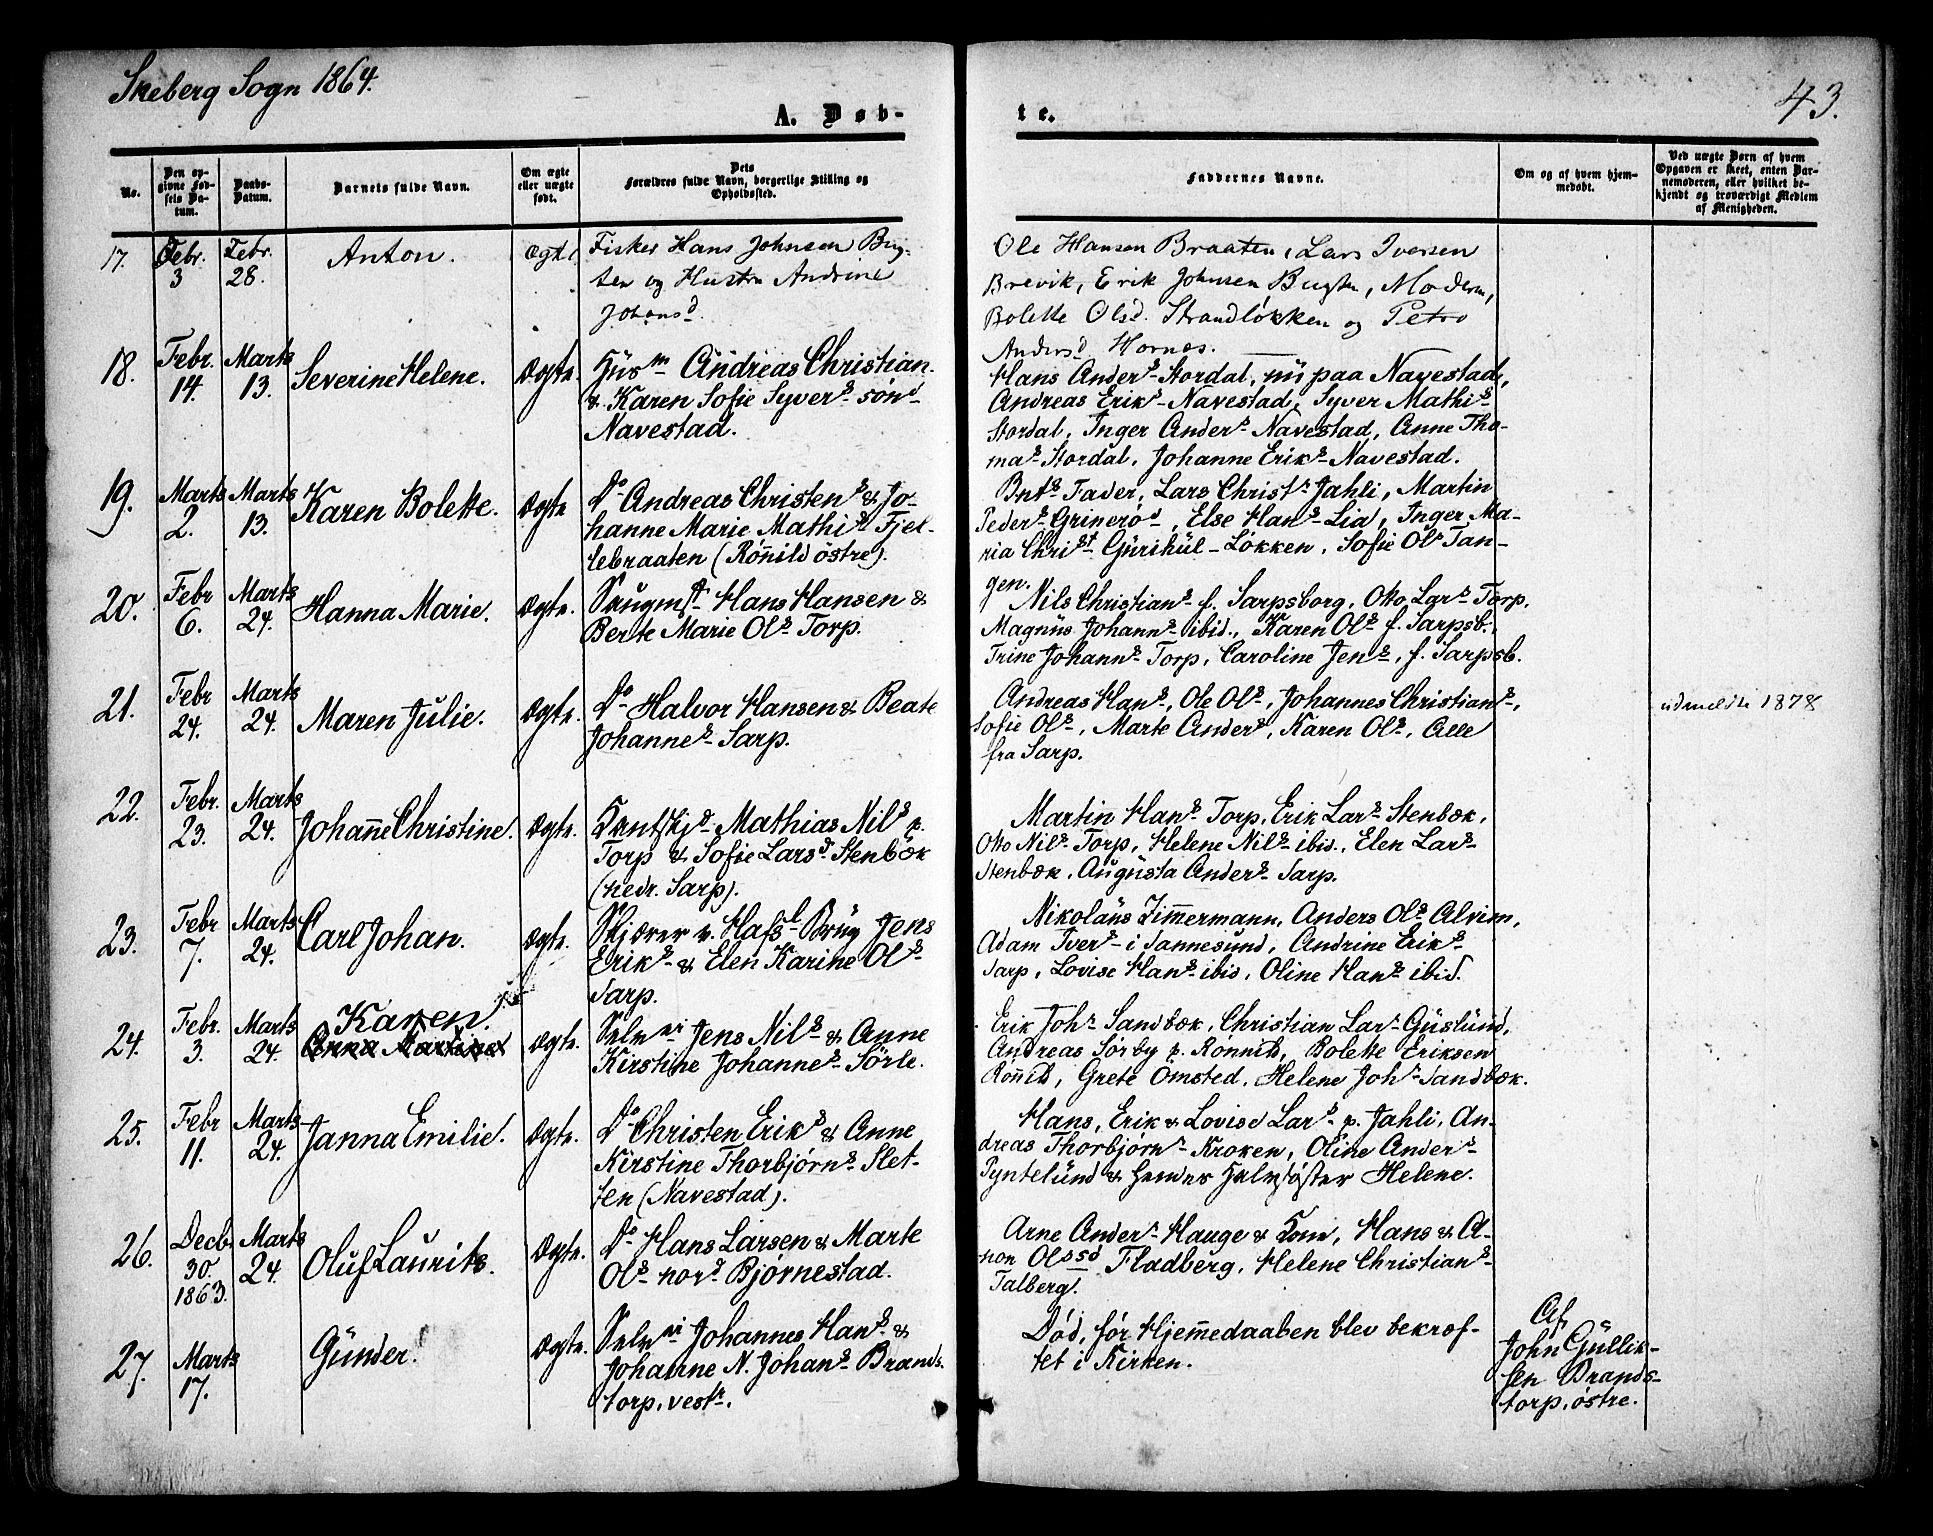 Skeberg Sogn 1864.
43.
A. Døb-
te.
No.
Den op-
givne Fød-
sels Da-
tum.
Daabs-
Datum.
Barnets fulde Navn.
Om ægte
eller uægte
født.
Dets
Forældres fulde Navn, borgerlige Stilling og
Opholdssted.
Faddernes Navne.
Om og af hvem hjem-
medøbt.
Ved uægte Børn af hvem
Opgaven er skeet, enten Bar-
nemoderen, eller hvilket be-
kjendt og troværdigt Medlem
af Menigheden.
17.
Febr.
3
Febr.
28.
Anton.
Ægte
Fisker Hans Johnsen Bug-
ten og Hustru Andrine
Johansd.
Ole Hansen Braaten, Lars Iversen
Brevik, Erik Johnsen Bugten, Moderen,
Bolette Olsd. Strandløkken og Petra
Andersd. Hornes.
18.
Febr.
14.
Marts
13.
Severine Helene.
Ægte.
Huusm Andreas Christian.
& Karen Sofie Syvers søn
Navestad.
Hans Anders Stordal, nu paa Navestad,
Andreas Eriks Navestad, Syver Mathis
Stordal, Inger Anders Navestad, Anne Tho-
mas Stordal, Johanne Eriks Navestad.
19.
Marts
2.
Marts
13.
Karen Bolette.
Ægte
Do Andreas Christens & Jo-
hanne Marie Mathis Fjel-
lebraaten (Rønnild østre).
Bnts Fader, Lars Christs Jahli, Martin
Peders Grinerød, Else Hans Lia, Inger Ma-
ria Christ Gurihul-Løkken, Sofie Ols Tan-
gen.
20.
Febr
6.
Marts
24.
Hanna Marie.
Ægte.
Brugmst Hans Hansen &
Berte Marie Ols Torp.
Nils Christians f. Sarpsborg, Otto Lars Torp,
Magnus Johanns ibid., Karen Ols f. Sarpsb.,
Trine Johanns Torp, Caroline Jens, f. Sarpsb.
21.
Febr
24.
Marts
24.
Maren Julie.
Ægte.
Do Halvor Hansen & Beate
Johannes Sarp.
Andreas Hans, Ole Ols, Johannes Christians,
Sofie Ols, Marte Anders, Karen Ols, Alle
fra Sarp.
udmeldt 1878
22.
Febr.
23.
Marts
24.
Johanne Christine.
Ægte.
Mathias Nils p.
Torp & Sofie Larsd Stenbæk
(nedr. Sarp).
Martin Hans Torp, Erik Lars Stenbæk,
Otto Nils Torp, Helene Nils ibid., Elen Lars
Stenbæk, Augusta Anders Sarp.
23.
Febr
7.
Marts
24.
Carl Johan.
Ægte.
Skjærer v. Hafsl Brug Jens
Eriks & Elen Karine Ols
Sarp.
Nikolaus Zimmermann, Anders Ols Alvim,
Adam Ivers i Sannesund, Andrine Eriks
Sarp, Lovise Hans ibid, Oline Hans ibid.
24.
Febr.
3.
Marts
24.
Karen.
Anna Martine
Ægte.
Selvei Jens Nils & Anne
Kirstine Johannes Sørle.
Erik Johs Sandbæk, Christian Lars Guslund,
Andreas Sørby p. Rønnild, Bolette Eriksen
Rønnild, Grete Omsted, Helene Johs Sandbæk.
25.
Febr
11.
Marts
24.
Janna Emilie.
Ægte.
Do Christen Eriks & Anne
Kirstine Thorbjørns Slet-
ten (Navestad).
Hans, Erik & Lovise Lars p. Jahli, An-
dreas Thorbjørns Kroken, Oline Anders
Pyntelund & hendes Halvsøster Helene.
26.
Decb.
30.
1863.
Marts
24.
Oluf Laurits.
Ægte.
Do Hans Larsen & Marte
Ols nord Bjørnestad.
Arne Anders Hauge & Kone, Hans & A-
non Ols Fladberg, Helene Christians
Talberg.
27.
Marts
17.
Gunder.
Ægte.
Selvei Johannes Hans &
Johanne N. Johans Brands-
torp, vestr.
Død, før Hjemmedaaben blev bekræf-
tet i Kirken.
Af
John Gullik-
sen Brands-
torp, østre.